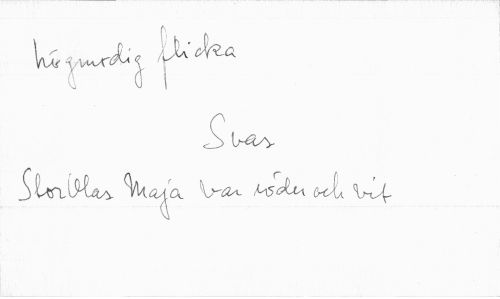 högmodig flicka
Svar
StorOlas Maja var röder och vit